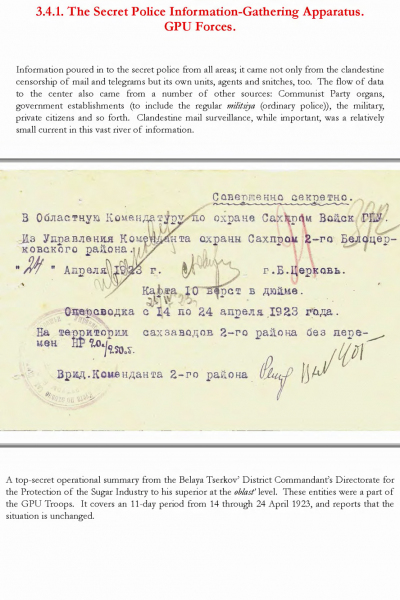 3.4.1. The Secret Police Information-Gathering Apparatus.
GPU Forces.
Information poured in to the secret police from all areas; it came not only from the clandestine
censorship of mail and telegrams but its own units, agents and snitches, too. The flow of data
to the center also came from a number of other sources: Communist Party organs,
government establishments (to include the regular militsiya (ordinary police)), the military,
private citizens and so forth. Clandestine mail surveillance, while important, was a relatively
small current in this vast river of information.
Совершенно секретно.
В Областную Комендатуру по охране Сахпром Войск ГПУ.
392
Из Управления Коменданта охраны Сахпром 2-го Белоцер-
ковского района.
"24" Апреля 1923 г. г.Б.Церковь.
Карта 10 верст в дюйме.
Оперсводка с 14 по 24 апреля 1923 года.
На территории сахзаводов 2-го района без пере-
мен
Врид.Коменданта 2-го района
A top-secret operational summary from the Belaya Tserkov' District Commandant's Directorate for
the Protection of the Sugar Industry to his superior at the oblast' level. These entities were a part of
the GPU Troops. It covers an 11-day period from 14 through 24 April 1923, and reports that the
situation is unchanged.